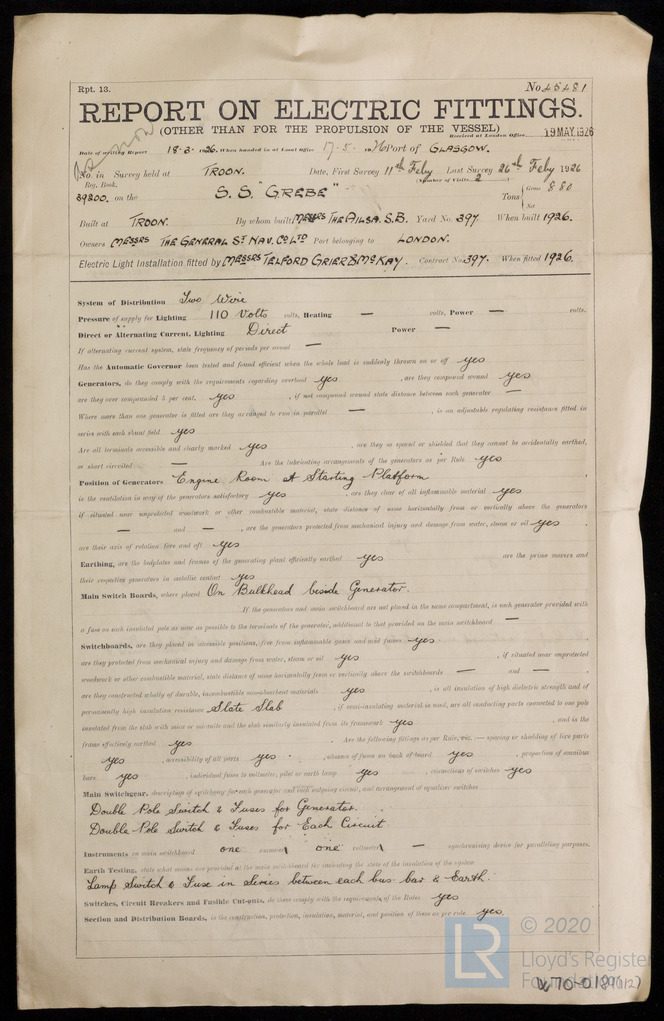 Rpt. 13.
No. 45481
REPORT ON ELECTRIC FITTINGS.
(OTHER THAN FOR THE PROPULSION OF THE VESSEL)
Received at London Office 19 MAY 1926
Date of writing Report 18-3-1926. When handed in at Local Office 17-5-1926 Port of GLASGOW.
No. in Survey held at TROON. Date, First Survey 11th Feby Last Survey 26th Feby 1926
Reg. Book. (Number of Visits 2)
39200. on the S.S. "GREBE" Tons Gross 880
Net
Built at TROON. By whom built MESSRS THE AILSA S.B. Yard No. 397. When built 1926.
Owners MESSRS THE GENERAL ST NAV. CO LTD Port belonging to LONDON.
Electric Light Installation fitted by MESSRS TELFORD GRIER & McKAY. Contract No. 397. When fitted 1926.
System of Distribution Two Wire
Pressure of supply for Lighting 110 Volts volts, Heating — volts, Power — volts.
Direct or Alternating Current, Lighting Direct Power —
If alternating current system, state frequency of periods per second —
Has the Automatic Governor been tested and found efficient when the whole load is suddenly thrown on or off yes
Generators, do they comply with the requirements regarding overload yes , are they compound wound yes
are they over compounded 5 per cent. yes , if not compound wound state distance between each generator —
Where more than one generator is fitted are they arranged to run in parallel — , is an adjustable regulating resistance fitted in
series with each shunt field yes
Are all terminals accessible and clearly marked yes , are they so spaced or shielded that they cannot be accidentally earthed,
or short circuited — Are the lubricating arrangements of the generators as per Rule yes
Position of Generators Engine Room At Starting Platform
is the ventilation in way of the generators satisfactory yes , are they clear of all inflammable material yes
if situated near unprotected woodwork or other combustible material, state distance of same horizontally from or vertically above the generators
— and — , are the generators protected from mechanical injury and damage from water, steam or oil yes ,
are their axis of rotation fore and aft yes
Earthing, are the bedplates and frames of the generating plant efficiently earthed yes are the prime movers and
their respective generators in metallic contact yes
Main Switch Boards, where placed On Bulkhead beside Generator.
If the generators and main switchboard are not placed in the same compartment, is each generator provided with
a fuse on each insulated pole as near as possible to the terminals of the generator, additional to that provided on the main switchboard —
Switchboards, are they placed in accessible positions, free from inflammable gases and acid fumes yes ,
are they protected from mechanical injury and damage from water, steam or oil yes , if situated near unprotected
woodwork or other combustible material, state distance of same horizontally from or vertically above the switchboards — and —
are they constructed wholly of durable, incombustible non-absorbent materials yes , is all insulation of high dielectric strength and of
permanently high insulation resistance Slate Slab , if semi-insulating material is used, are all conducting parts connected to one pole
insulated from the slab with mica or micanite and the slab similarly insulated from its framework yes , and is the
frame effectively earthed yes Are the following fittings as per Rule, viz. — spacing or shielding of live parts
yes , accessibility of all parts yes , absence of fuses on back of board yes , proportion of omnibus
bars yes , individual fuses to voltmeter, pilot or earth lamp yes , connections of switches yes
Main Switchgear, description of switchgear for each generator and each outgoing circuit, and arrangement of equaliser switches
Double Pole Switch & Fuses for Generator.
Double Pole Switch & Fuses for Each Circuit
Instruments on main switchboard one ammeter one voltmeter — synchronising device for paralleling purposes.
Earth Testing, state what means are provided at the main switchboard for indicating the state of the insulation of the system
Lamp Switch & Fuse in Series between each bus bar & Earth.
Switches, Circuit Breakers and Fusible Cut-outs, do these comply with the requirements of the Rules yes
Section and Distribution Boards, is the construction, protection, insulation, material, and position of these as per rule yes.
LR © 2020
Lloyd's Register
Foundation